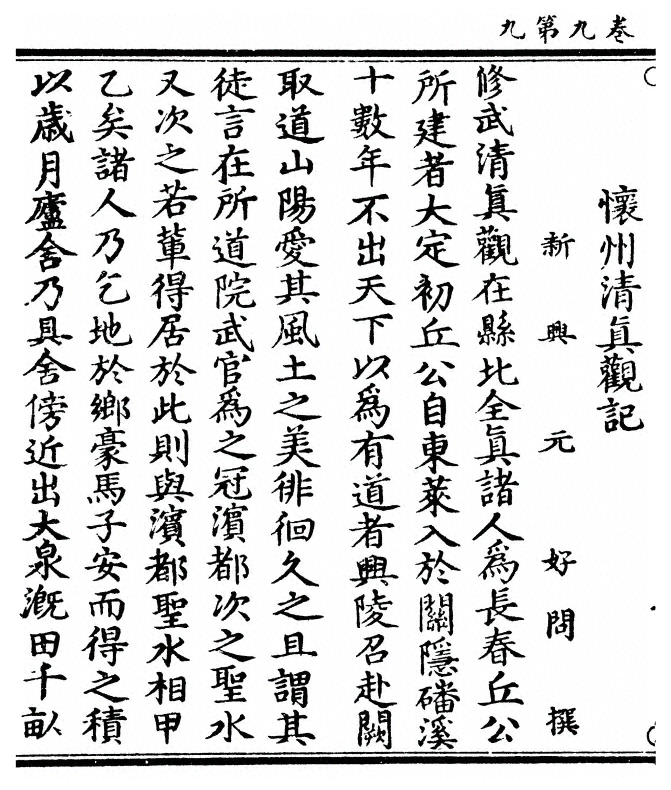 卷九第九
懷州清眞觀記
新興元好問撰
修武清眞觀在縣北全眞諸人爲長春丘公
所建者大定初丘公自東萊入於關隱磻溪
十數年不出天下以爲有道者興陵召赴闕
取道山陽愛其風土之美徘徊久之且謂其
徒言在所道院武官爲之冠濱都次之聖水
又次之若輩得居於此則與濱都聖水相甲
乙矣諸人乃乞地於鄉豪馬子安而得之積
以歲月廬舍乃具舍傍近出大泉漑田千畝